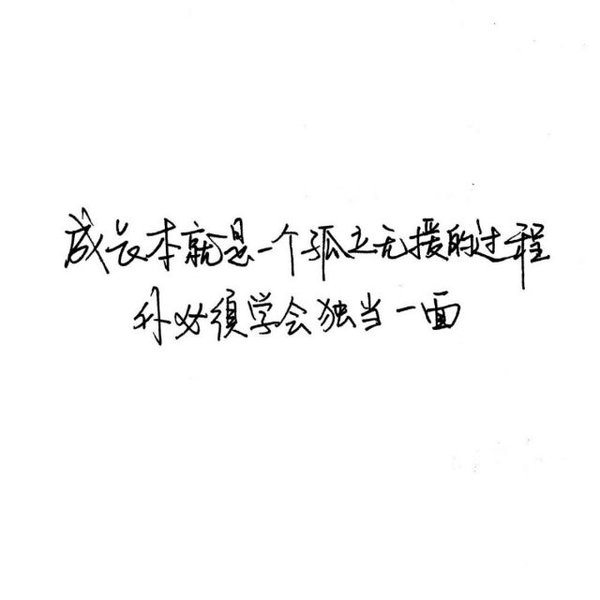 成长本就是一个孤立无援的过程
你必须学会独当一面